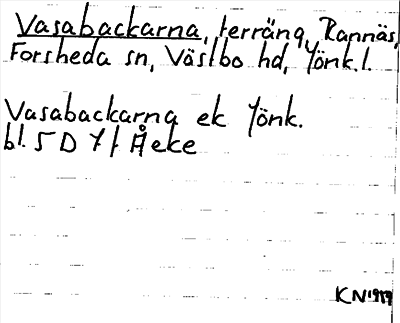 Vasabackarna, terräng, Rannäs,
Forsheda sn, Västbo hd, Jönk. l.
Vasabackarna ek Jönk.
bl. 5 D 7 f Åeke
KN 1979